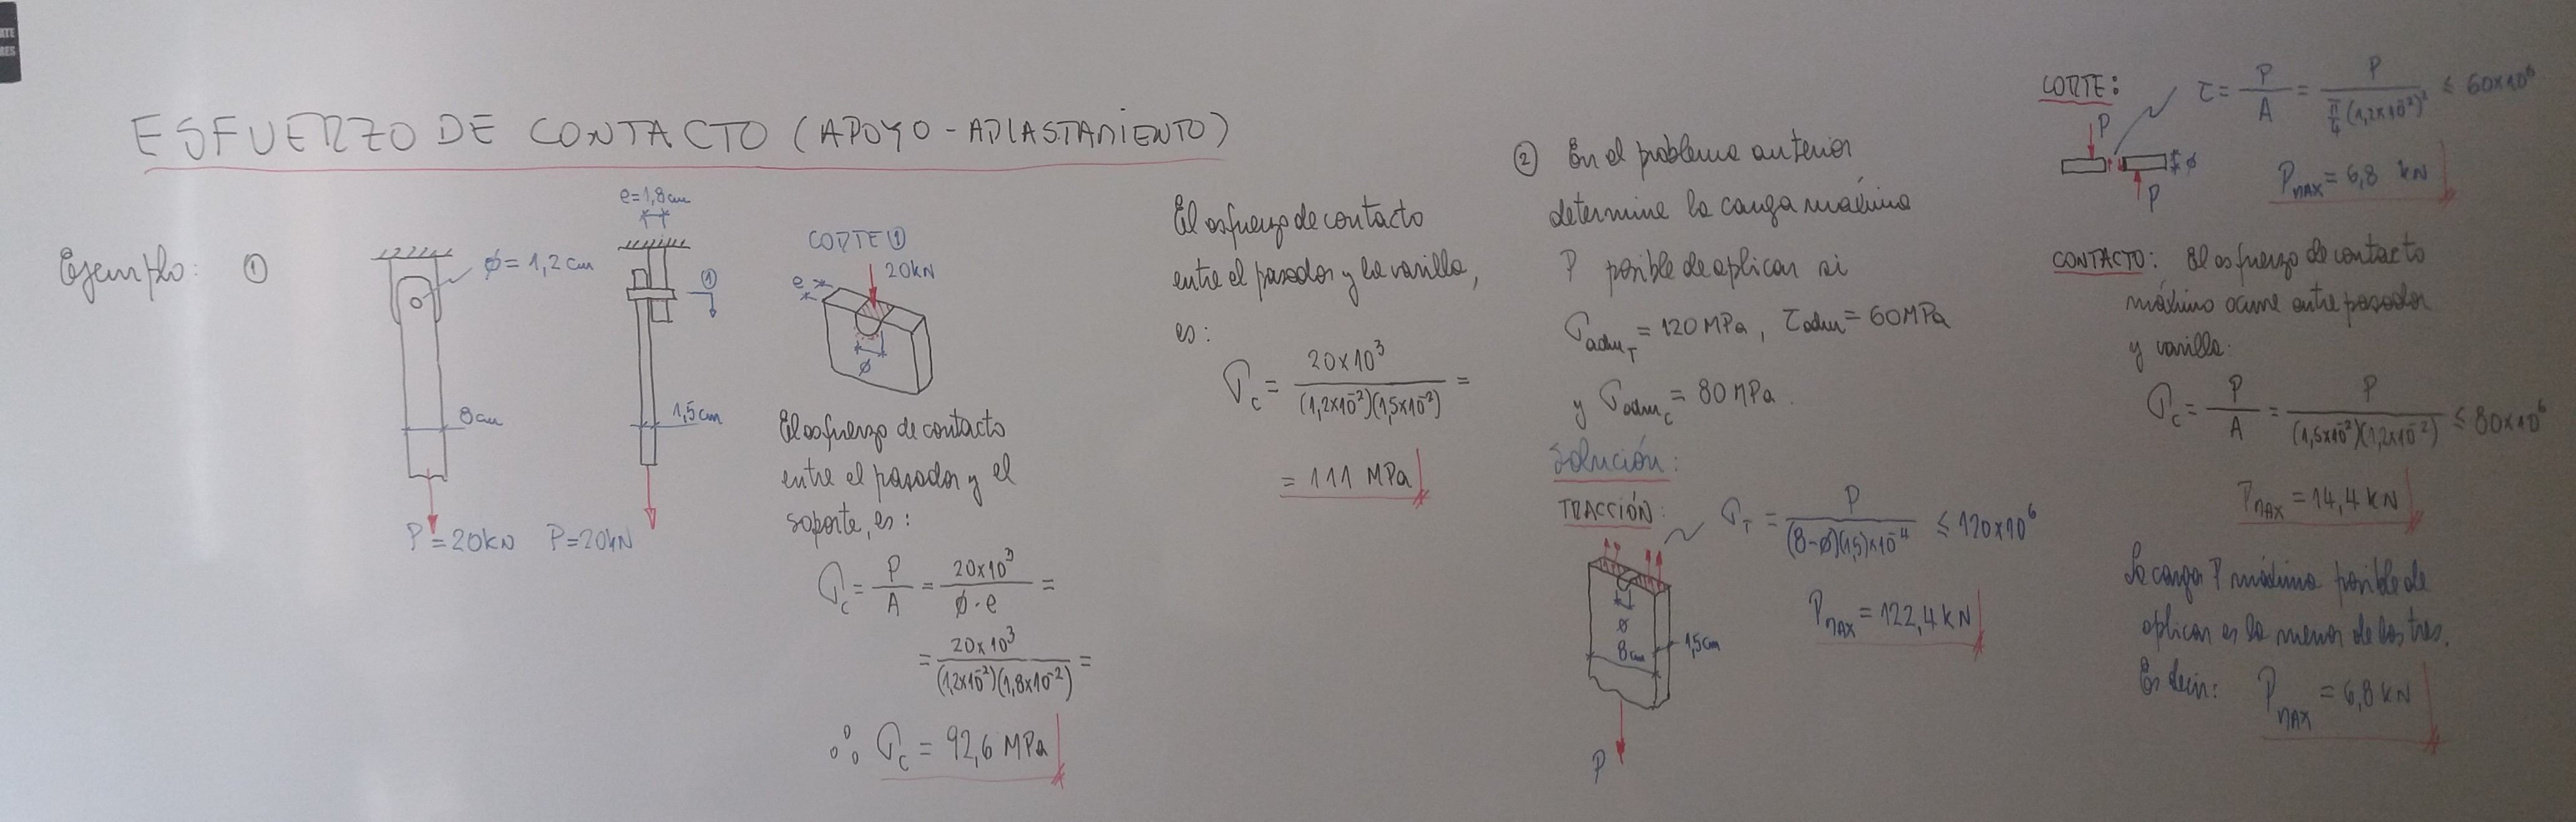 ESFUERZO DE CONTACTO (APOYO - APLASTAMIENTO)
Ejemplo: ①
φ = 1,2 cm
8cm
P = 20kN
e = 1,8cm
①
1,5cm
P = 20kN
CORTE ①
20kN
e
φ
El esfuerzo de contacto
entre el pasador y el
soporte, es:
σc = P/A = 20x10³/(φ·e) =
= 20x10³/((1,2x10⁻²)(1,8x10⁻²)) =
∴ σc = 92,6 MPa
El esfuerzo de contacto
entre el pasador y la varilla,
es:
σc = 20x10³/((1,2x10⁻²)(1,5x10⁻²)) =
= 111 MPa
② En el problema anterior
determine la carga máxima
P posible de aplicar si
σadmT = 120 MPa, τadm = 60MPa
y σadmc = 80 MPa.
Solución:
TRACCIÓN:
σT = P/((8-φ)(1,5)x10⁻⁴) ≤ 120x10⁶
PMAX = 122,4 kN
φ
8cm
1,5cm
P
CORTE:
τ = P/A = P/(π/4 (1,2x10⁻²)²) ≤ 60x10⁶
P
φ
P
PMAX = 6,8 kN
CONTACTO: El esfuerzo de contacto
máximo ocurre entre pasador
y varilla:
σc = P/A = P/((1,5x10⁻²)(1,2x10⁻²)) ≤ 80x10⁶
PMAX = 14,4 kN
La carga P máxima posible de
aplicar es la menor de las tres.
Es decir: PMAX = 6,8 kN